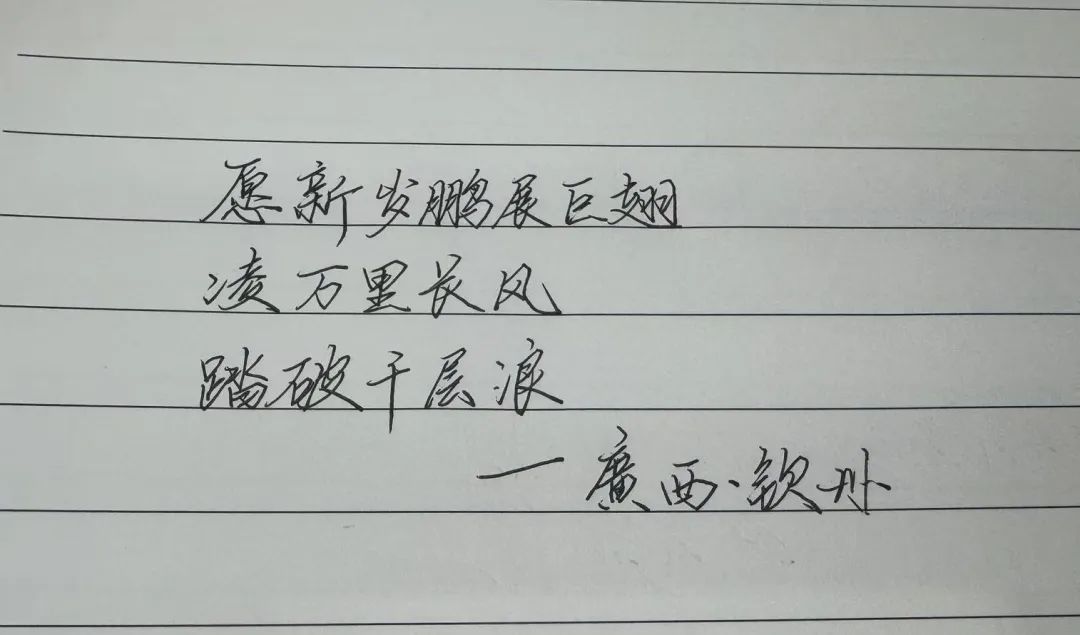 愿新岁鹏展巨翅
凌万里长风
踏破千层浪
—廣西·钦州